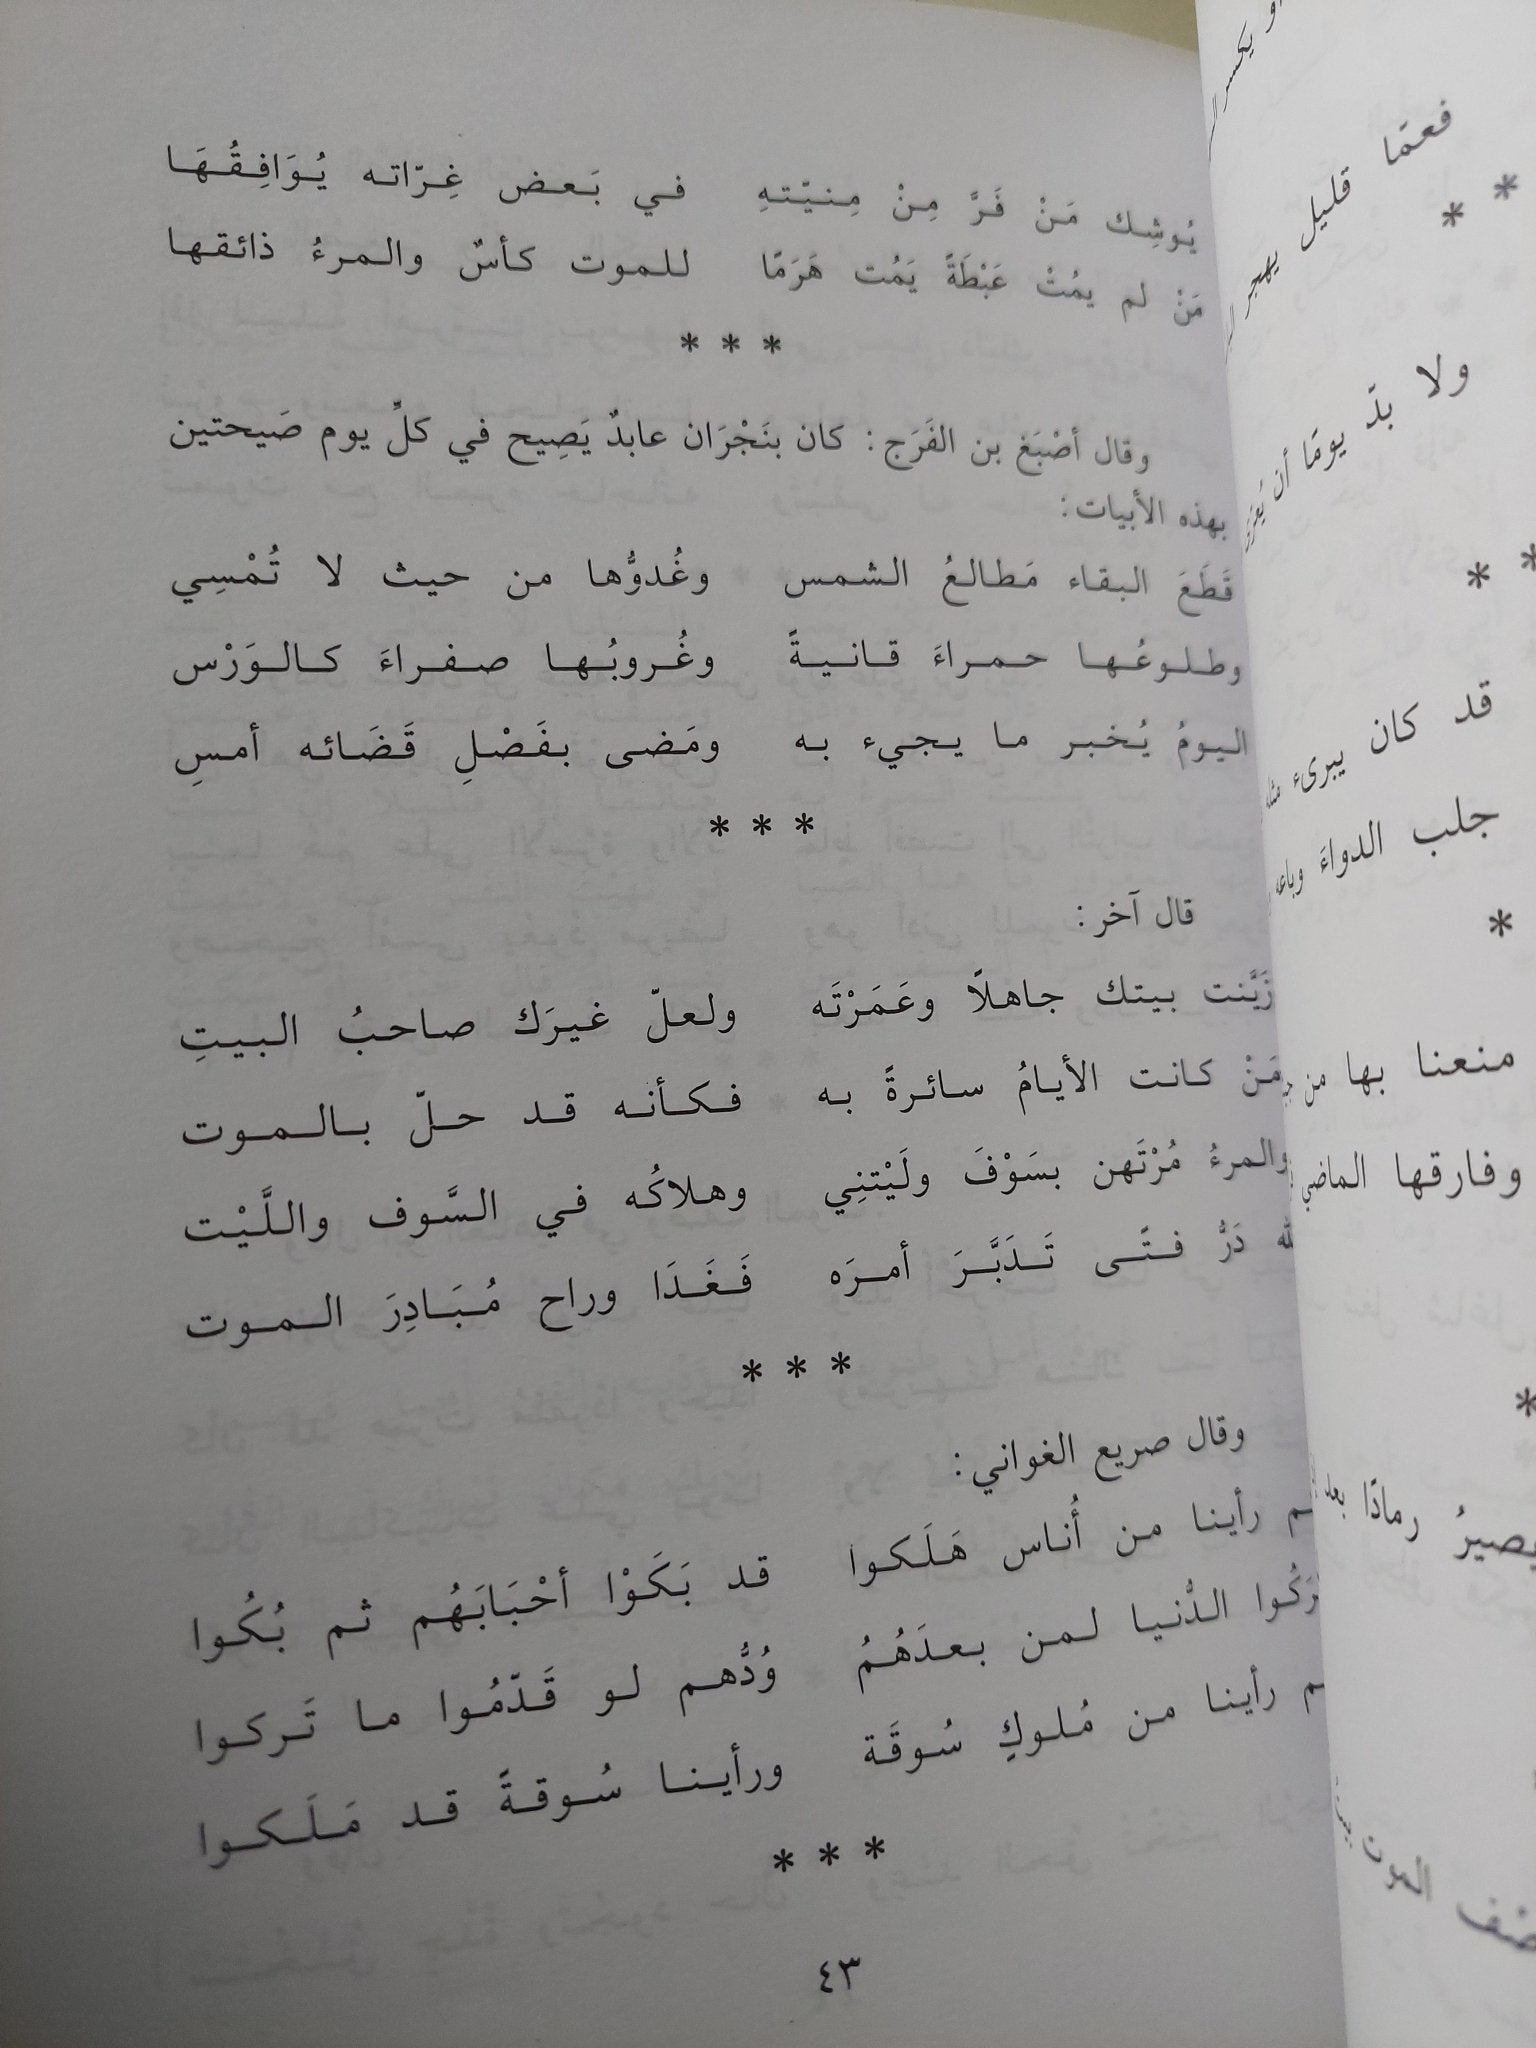 يُوشِك مَنْ فَرَّ مِنْ مِنيّتهِ في بَعض غِرّاته يُوَافِقُهَا
مَنْ لم يمُتْ عَبْطَةً يَمُت هَرَمًا للموت كأسٌ والمرءُ ذائقها
* * *
وقال أصْبَغ بن الفَرَج: كان بنَجْرَان عابدٌ يَصِيح في كلِّ يوم صَيحتين
بهذه الأبيات:
قَطَعَ البقاء مَطالعُ الشمس وغُدوُّها من حيث لا تُمْسِي
وطلوعُها حمراءَ قانيةً وغُروبُها صفراءَ كالوَرْس
اليومُ يُخبر ما يجيء به ومَضى بفَصْلِ قَضَائه أمسِ
* * *
قال آخر:
زَيَّنت بيتك جاهلًا وعَمَرْتَه ولعلّ غيرَك صاحبُ البيتِ
مَنْ كانت الأيامُ سائرةً به فكأنه قد حلّ بالموت
والمرءُ مُرْتَهن بسَوْفَ ولَيْتنِي وهلاكُه في السَّوف واللَّيْت
لله دَرُّ فتًى تَدَبَّرَ أمرَه فَغَدَا وراح مُبَادِرَ الموت
* * *
وقال صريع الغواني:
رأينا من أُناس هَلَكوا قد بَكَوْا أحْبَابَهُم ثم بُكُوا
الدُّنيا لمن بعدَهُمُ وُدُّهم لو قَدّمُوا ما تَركوا
رأينا من مُلوكٍ سُوقَة ورأينا سُوقةً قد مَلَكوا
* * *
٤٣
فعمّا قليل يهجر
* *
ولا بدّ يومًا أن
* *
قد كان يبرىء
جلب الدواءَ وباعه
*
منعنا بها من
وفارقها الماضي
*
يصيرُ رمادًا